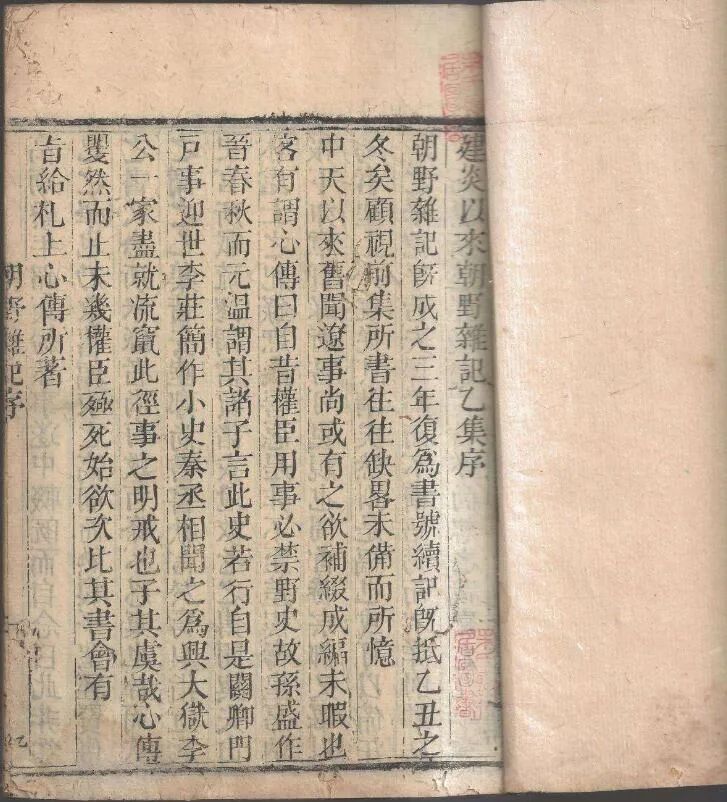 建炎以來朝野雜記乙集序
朝野雜記旣成之三年復爲書號續記旣抵乙丑之
冬矣顧視前集所書往往缺畧未備而所憶
中天以來舊聞遼事尚或有之欲補綴成編未暇也
客有謂心傳曰自昔權臣用事必禁野史故孫盛作
晉春秋而元溫謂其諸子言此史若行自是關卿門
戸事近世李莊簡作小史秦丞相聞之爲興大獄李
公一家盡就流竄此徑事之明戒也子其虞哉心傳
矍然而止未幾權臣殛死始欲次比其書會有
旨給札上心傳所著
朝野雜記序